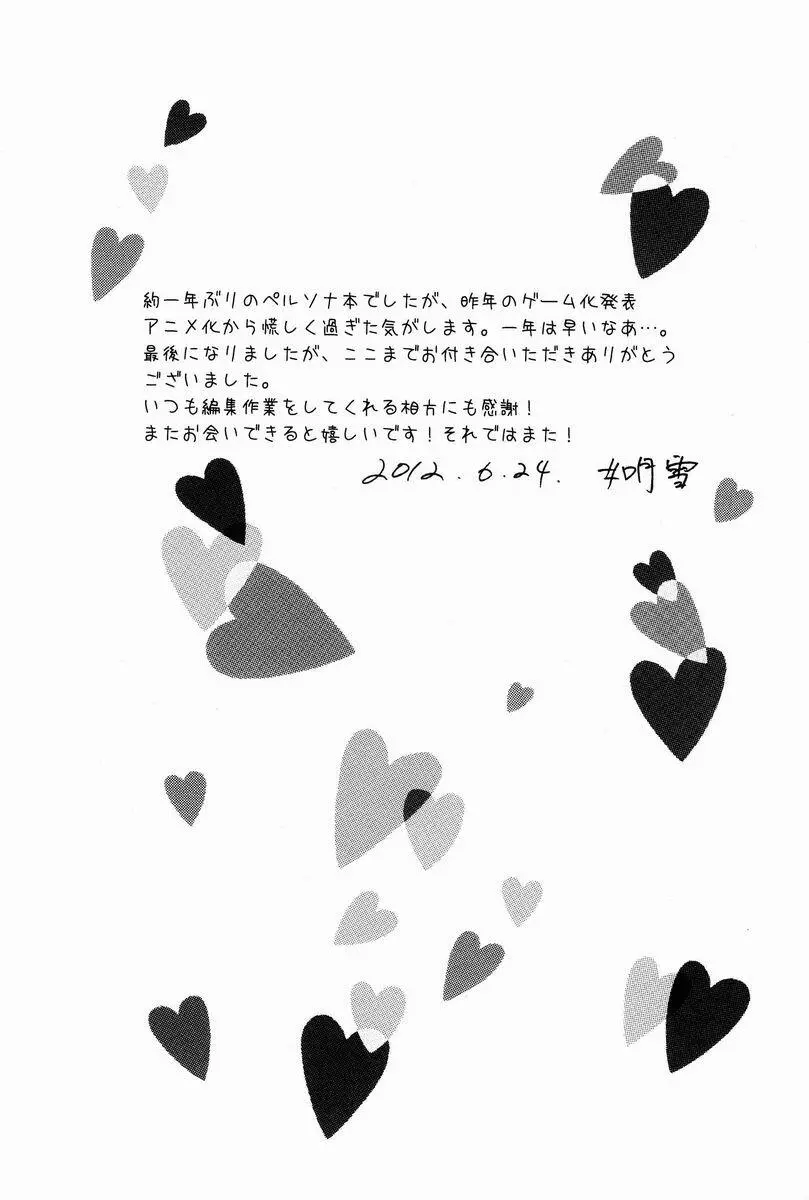 約一年ぶりのペルソナ本でしたが、昨年のゲーム化発表
アニメ化から慌しく過ぎた気がします。一年は早いなあ…。
最後になりましたが、ここまでお付き合いただきありがとう
ございました。
いつも編集作業をしてくれる相方にも感謝！
またお会いできると嬉しいです！それではまた！
2012.6.24. 明雪